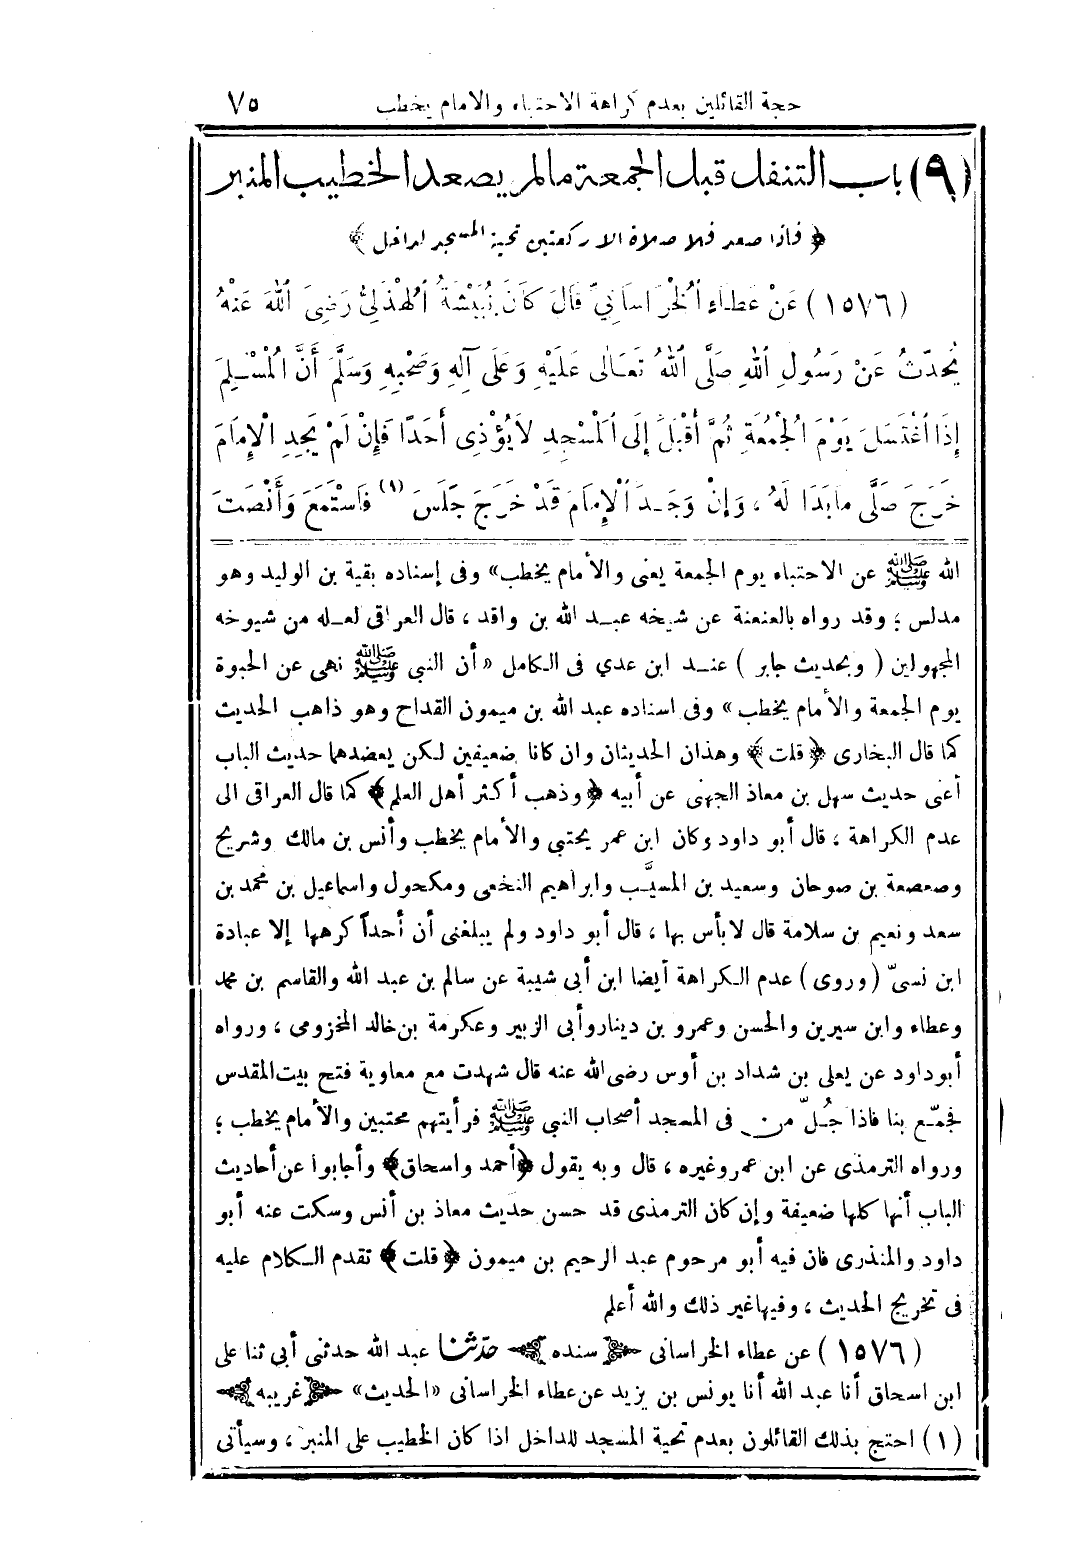 حجة القائلين بعدم كراهة الاحتباء والامام يخطب ٧٥
(٩) باب التنفل قبل الجمعة مالم يصعد الخطيب المنبر
﴿ فاذا صعد فلا صلاة الا ركعتين تحية المسجد لداخل ﴾
(١٥٧٦) عَنْ عَطَاءٍ ٱلْخُرَاسَانِيِّ قَالَ كَانَ نُبَيْشَةُ ٱلْهُذَلِيُّ رَضِىَ ٱللهُ عَنْهُ
يُحَدِّثُ عَنْ رَسُولِ ٱللهِ صَلَّى ٱللهُ تَعَالَى عَلَيْهِ وَعَلَى آلِهِ وَصَحْبِهِ وَسَلَّمَ أَنَّ الْمُسْلِمَ
إِذَا ٱغْتَسَلَ يَوْمَ الْجُمُعَةِ ثُمَّ أَقْبَلَ إِلَى ٱلْمَسْجِدِ لاَيُؤْذِى أَحَدًا فَإِنْ لَمْ يَجِدِ الْإِمَامَ
خَرَجَ صَلَّى مَابَدَا لَهُ ، وَإِنْ وَجَدَ ٱلْإِمَامَ قَدْ خَرَجَ جَلَسَ (١) فَاسْتَمَعَ وَأَنْصَتَ
الله ﷺ عن الاحتباء يوم الجمعة يعنى والأمام يخطب» وفى إسناده بقية بن الوليد وهو
مدلس ؛ وقد رواه بالعنعنة عن شيخه عبد الله بن واقد ، قال العراقى لعله من شيوخه
المجهولين ( وبحديث جابر ) عند ابن عدي فى الكامل «أن النبى ﷺ نهى عن الحبوة
يوم الجمعة والأمام يخطب» وفى اسناده عبد الله بن ميمون القداح وهو ذاهب الحديث
كما قال البخارى ﴿قلت﴾ وهذان الحديثان وان كانا ضعيفين لكن يعضدهما حديث الباب
أعنى حديث سهل بن معاذ الجهنى عن أبيه ﴿وذهب أكثر أهل العلم﴾ كما قال العراقى الى
عدم الكراهة ، قال أبو داود وكان ابن عمر يحتبي والأمام يخطب وأنس بن مالك وشريح
وصعصعة بن صوحان وسعيد بن المسيَّب وابراهيم النخعى ومكحول واسماعيل بن محمد بن
سعد ونعيم بن سلامة قال لابأس بها ، قال أبو داود ولم يبلغنى أن أحداً كرهها إلا عبادة
ابن نسىّ (وروى) عدم الكراهة أيضا ابن أبى شيبة عن سالم بن عبد الله والقاسم بن محمد
وعطاء وابن سيرين والحسن وعمرو بن دينار وأبى الزبير وعكرمة بن خالد المخزومى ، ورواه
أبوداود عن يعلى بن شداد بن أوس رضى الله عنه قال شهدت مع معاوية فتح بيت المقدس
فجمّع بنا فاذا جُلّ من فى المسجد أصحاب النبى ﷺ فرأيتهم محتبين والأمام يخطب ؛
ورواه الترمذى عن ابن عمر وغيره ، قال وبه يقول ﴿أحمد واسحاق﴾ وأجابوا عن أحاديث
الباب أنها كلها ضعيفة وإن كان الترمذى قد حسن حديث معاذ بن أنس وسكت عنه أبو
داود والمنذرى فان فيه أبو مرحوم عبد الرحيم بن ميمون ﴿قلت﴾ تقدم الكلام عليه
فى تخريج الحديث ، وفيها غير ذلك والله أعلم
(١٥٧٦) عن عطاء الخراسانى ﴿سنده﴾ حدّثنا عبد الله حدثنى أبي ثنا على
ابن اسحاق أنا عبد الله أنا يونس بن يزيد عن عطاء الخراسانى «الحديث» ﴿غريبه﴾
(١) احتج بذلك القائلون بعدم تحية المسجد للداخل اذا كان الخطيب على المنبر ، وسيأتى